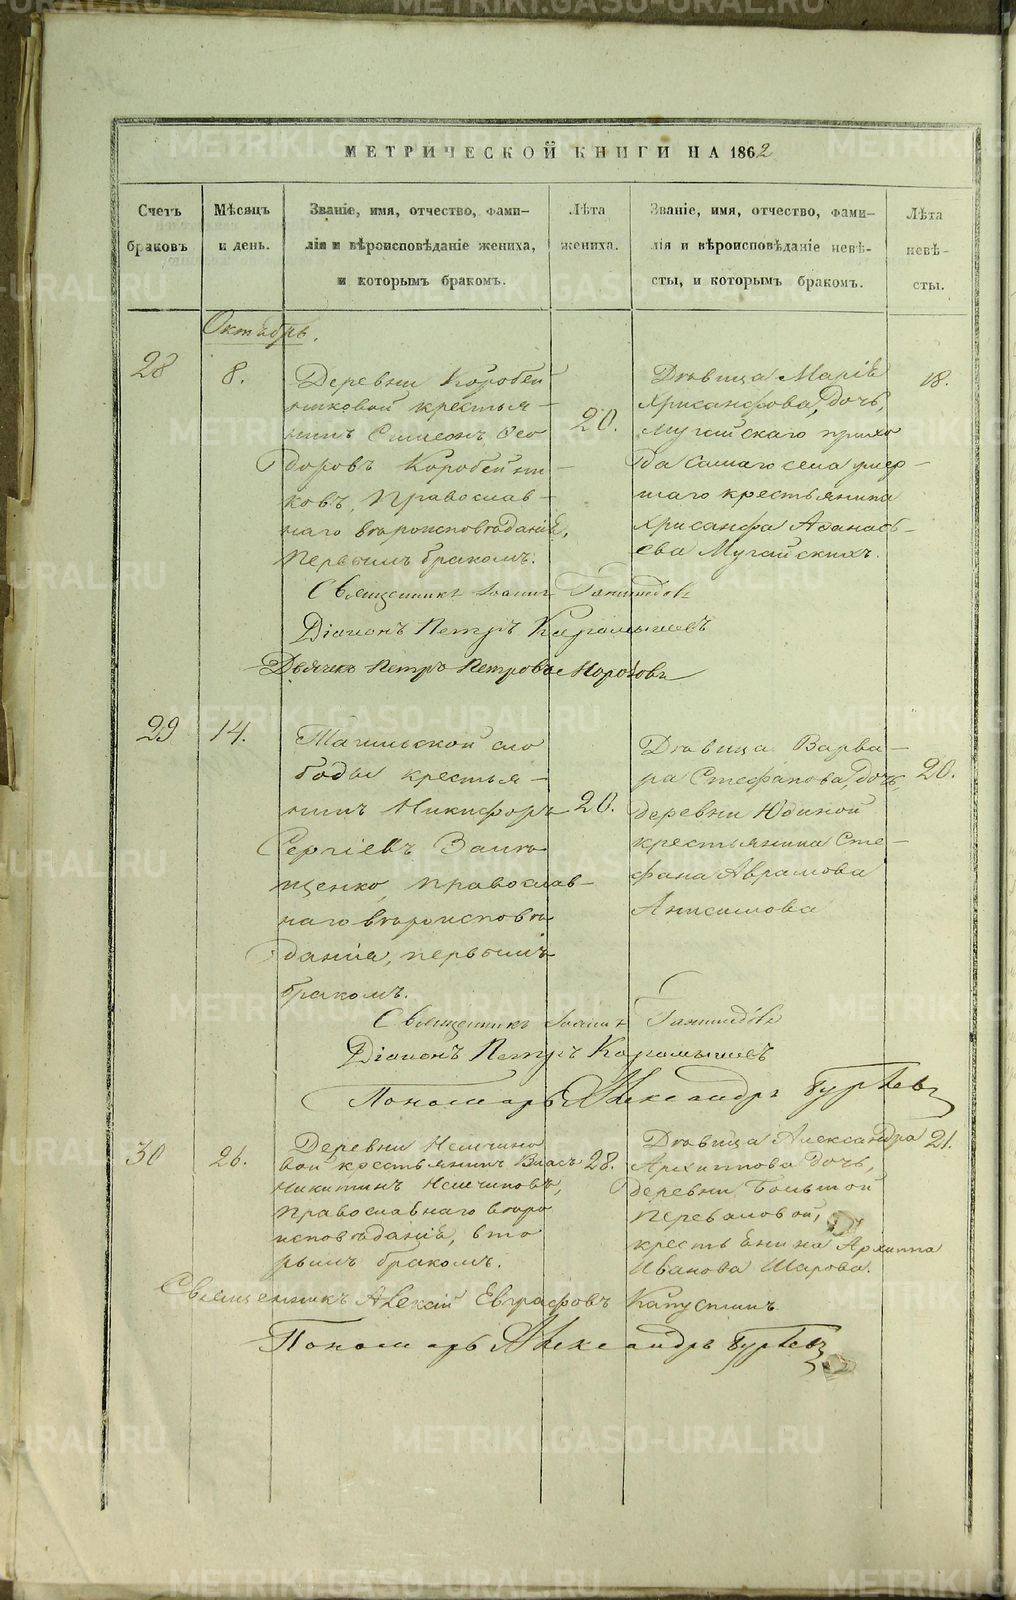 МЕТРИЧЕСКОЙ КНИГИ НА 1862
Счетъ браковъ
Мѣсяцъ и день.
Званіе, имя, отчество, фами-
лія и вѣроисповѣданіе жениха,
и которымъ бракомъ.
Лѣта жениха.
Званіе, имя, отчество, фами-
лія и вѣроисповѣданіе невѣ-
сты, и которымъ бракомъ.
Лѣта невѣ-
сты.
Октябрь.
28
8.
Деревни Коробей
никовой крестья-
нинъ Симеонъ Ѳео
доровъ Коробейни-
ковъ, православ-
наго вѣроисповѣданія,
первымъ бракомъ.
20.
Дѣвица Марія
Хрисанфова, дочь,
Мугайскаго прихо
да самаго села умер-
шаго крестьянина
Хрисанфа Аѳанась-
ева Мугайскихъ.
18.
Священникъ Іоаннъ
Діаконъ Петръ Карамышевъ
Дьячекъ Петръ Петровъ Морозовъ
29
14.
Тагильской сло
боды крестья-
нинъ Никифоръ
Сергіевъ
православ-
наго вѣроисповѣ
данія, первымъ
бракомъ.
20.
Дѣвица Варва-
ра Стефанова, дочь,
деревни Юдиной
крестьянина Сте-
фана Аврамова
Анисимова
20.
Священникъ Іоаннъ
Діаконъ Петръ Карамышевъ
Пономарь Александръ Гурьевъ
30
26.
Деревни Немчино
вой крестьянинъ Власъ
Никитинъ Немчиновъ,
православнаго вѣро
исповѣданія, вто
рымъ бракомъ.
28.
Дѣвица Александра
Архиппова дочь,
деревни Большой
Переваловой,
крестьянина Архиппа
Иванова Шарова.
21.
Священникъ Алексій Евграфовъ Капустинъ
Пономарь Александръ Гурьевъ
METRIKI.GASO-URAL.RU